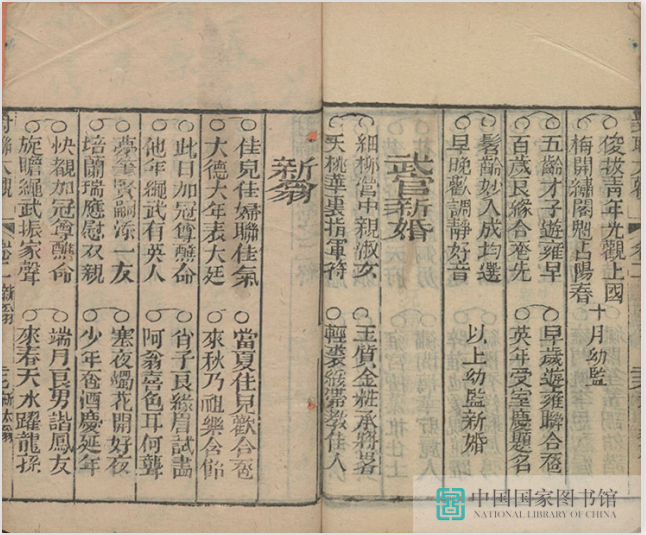 俊拔青年光觀上國
梅開繡閣尅占陽春 十月幼監
五齡才子遊雍早 早歲遊雍聯合巹
百歲良緣合巹先 英年受室慶題名
髫齡妙入成均選 以上幼監新婚
早晚歡調靜好音
武官新婚
細柳營中親淑女 玉質金粧承將畧
夭桃華裏指軍符 輕裘緩帶教佳人
新翁
佳兒佳婦聯佳氣 當夏佳兒歡合巹
大德大年表大廷 來秋乃祖樂含飴
此日加冠尊醮命 肖子良緣眉試畵
他年繩武有英人 阿翁喜色耳何聾
賢嗣添一友 塞夜蠋花開好夜
培蘭瑞應慰双親 少年巹酒慶延年
快覩加冠尊醮命 端月良男諧鳳友
旋瞻繩武振家聲 來春天水躍龍孫
對聯大觀 卷一 新翁
中国国家图书馆
NATIONAL LIBRARY OF CHINA